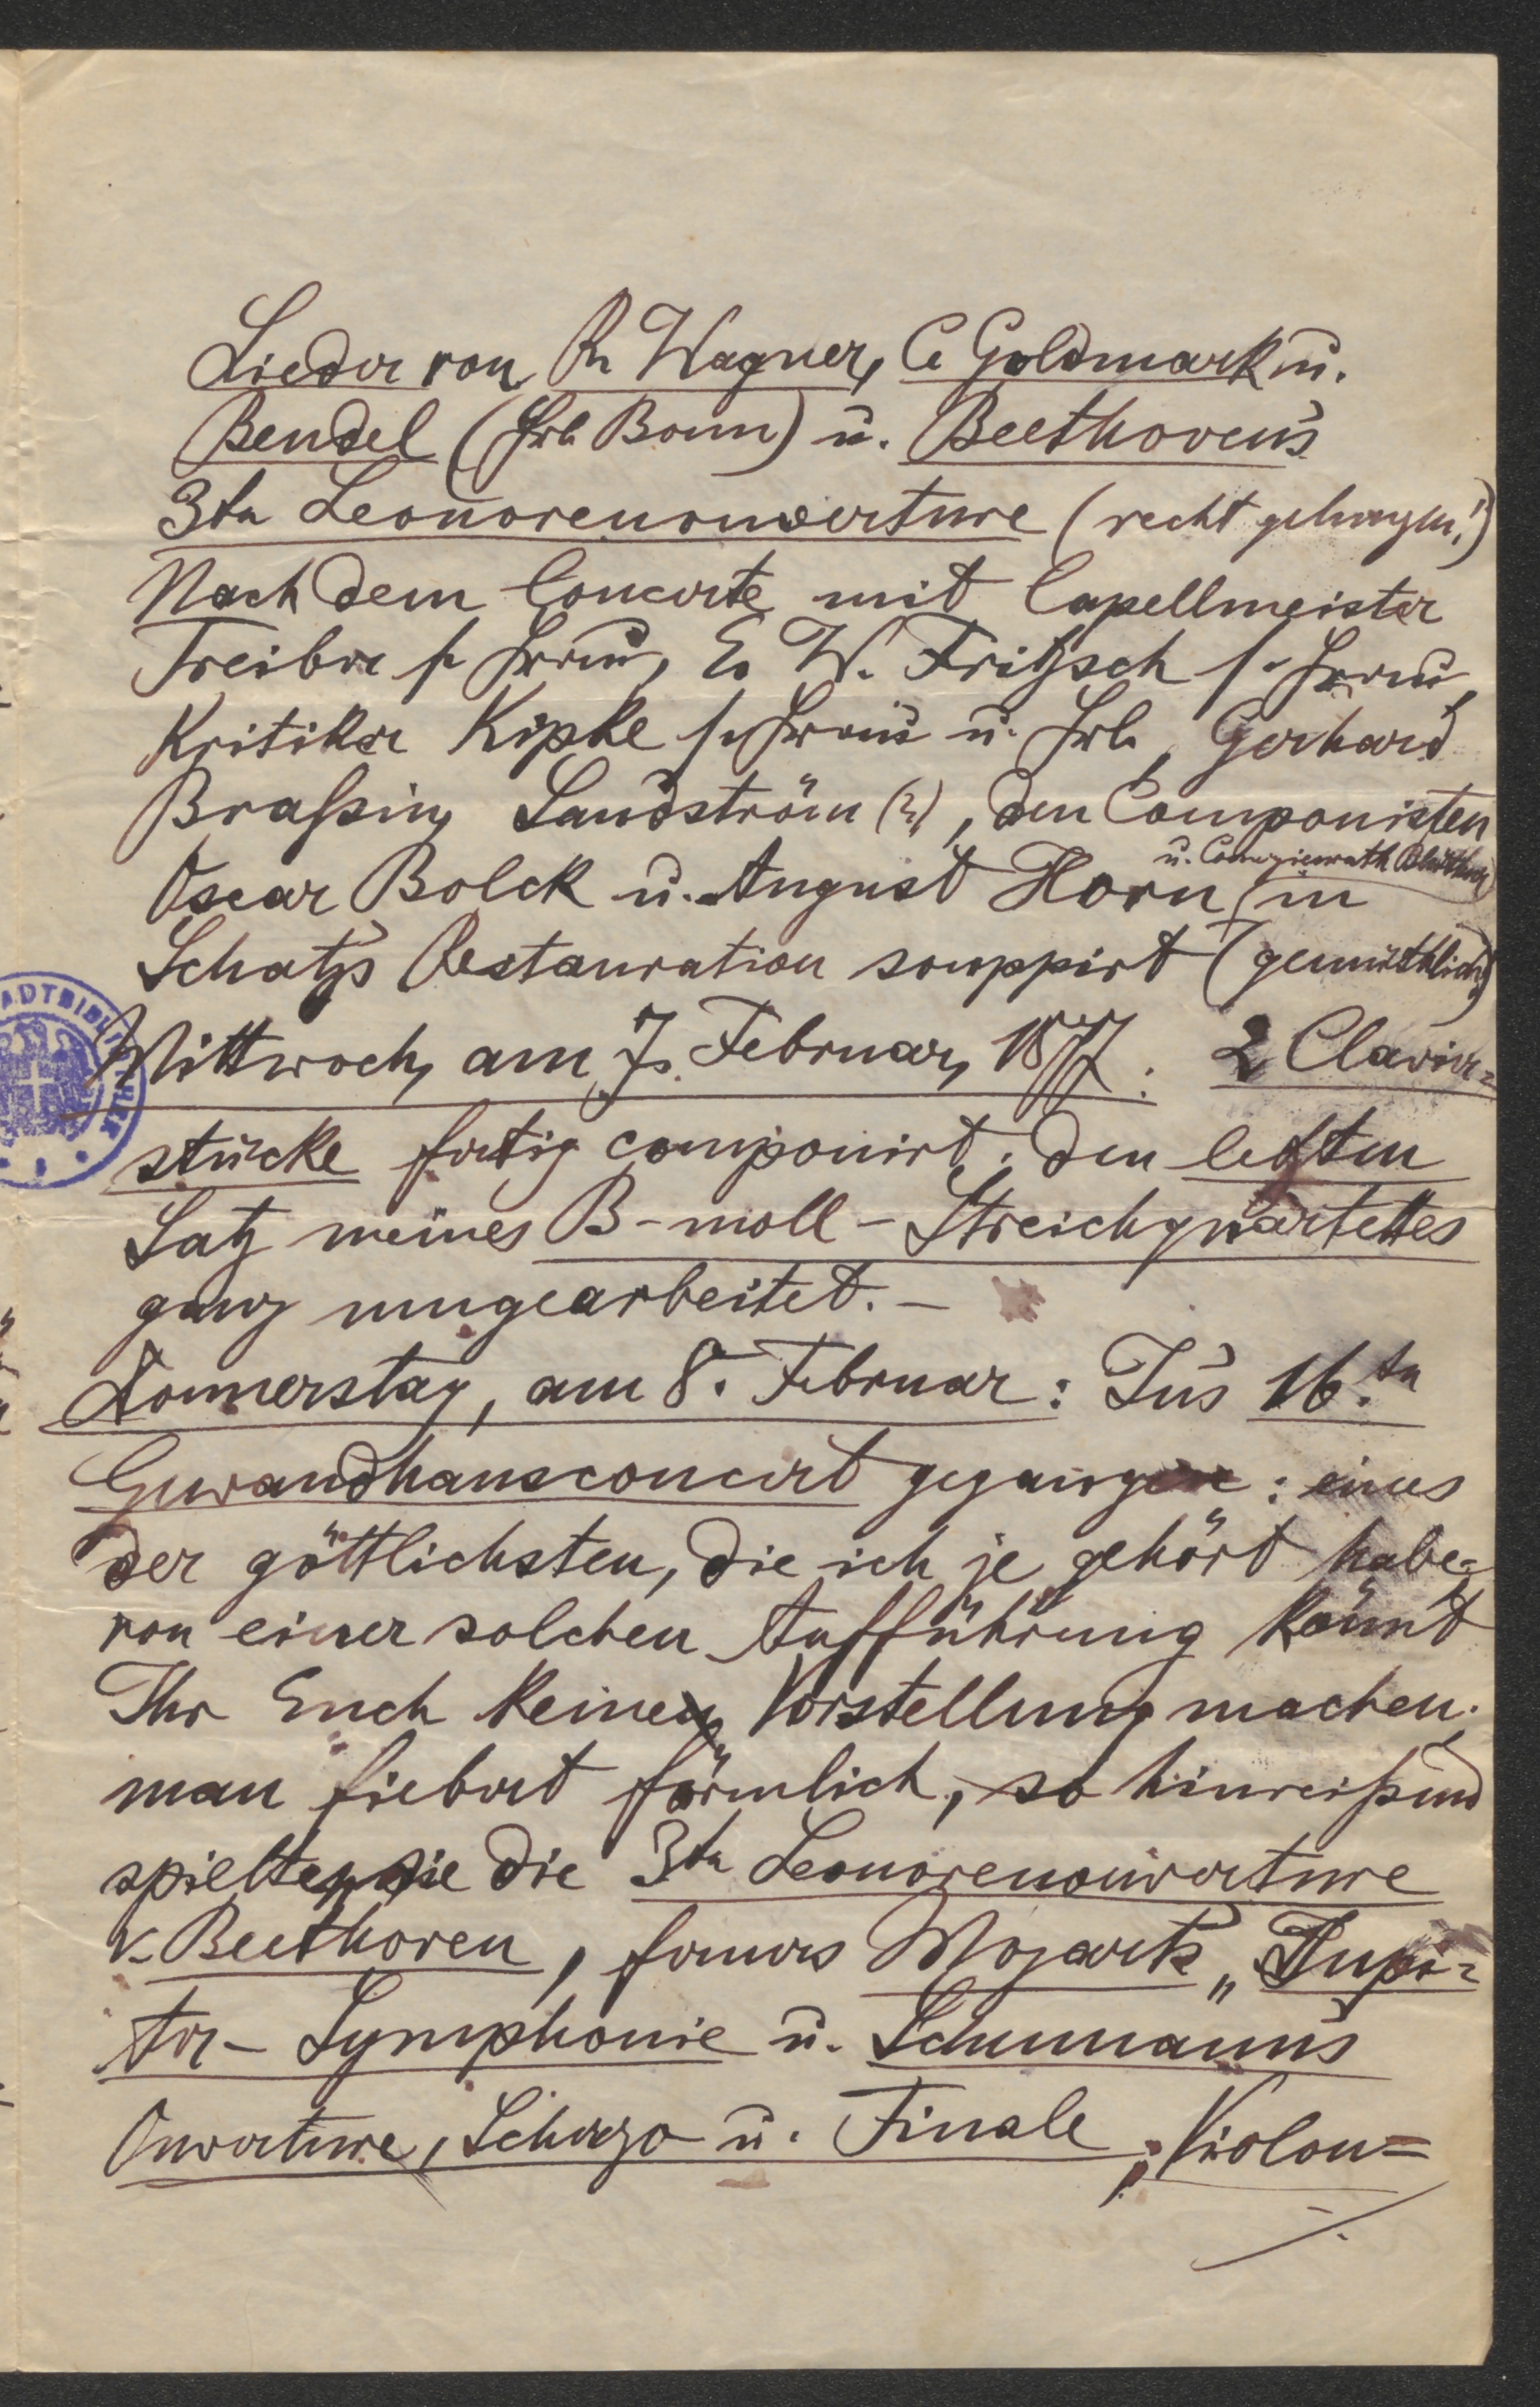 Lieder von R. Wagner, C. Goldmark u.
Bendel (Frl. Bonn) u. Beethoven's
3te Leonorenouverture (recht gelungen!)
Nach dem Concerte mit Capellmeister
Treiber s. Frau, E. W. Fritzsch s. Frau,
Kritiker Kipke s. Frau u. Frl., Gerhard
Braßin, Landström (?), den Componisten
Oscar Bolck u. August Horn in
u. Commerzienrath Blüthner
Schatz's Restauration souppirt (gemüthlich)
Mittwoch, am 7. Februar, 1877: 2 Clavier=
stücke fertig componirt, den letzten
Satz meines B-moll-Streichquartettes
ganz umgearbeitet. –
Donnerstag, am 8. Februar: In's 16.te
Gewandhausconcert gegangen: eines
der göttlichsten, die ich je gehört habe –
von einer solchen Aufführung könnt
Ihr Euch keine Vorstellung machen;
man fiebert förmlich, so hinreißend
spielten sie die 3te Leonorenouverture
v. Beethoven, ferners Mozart's „Jupi=
ter-Symphonie u. Schumann's
Ouverture, Scherzo u. Finale; Violon=
./.